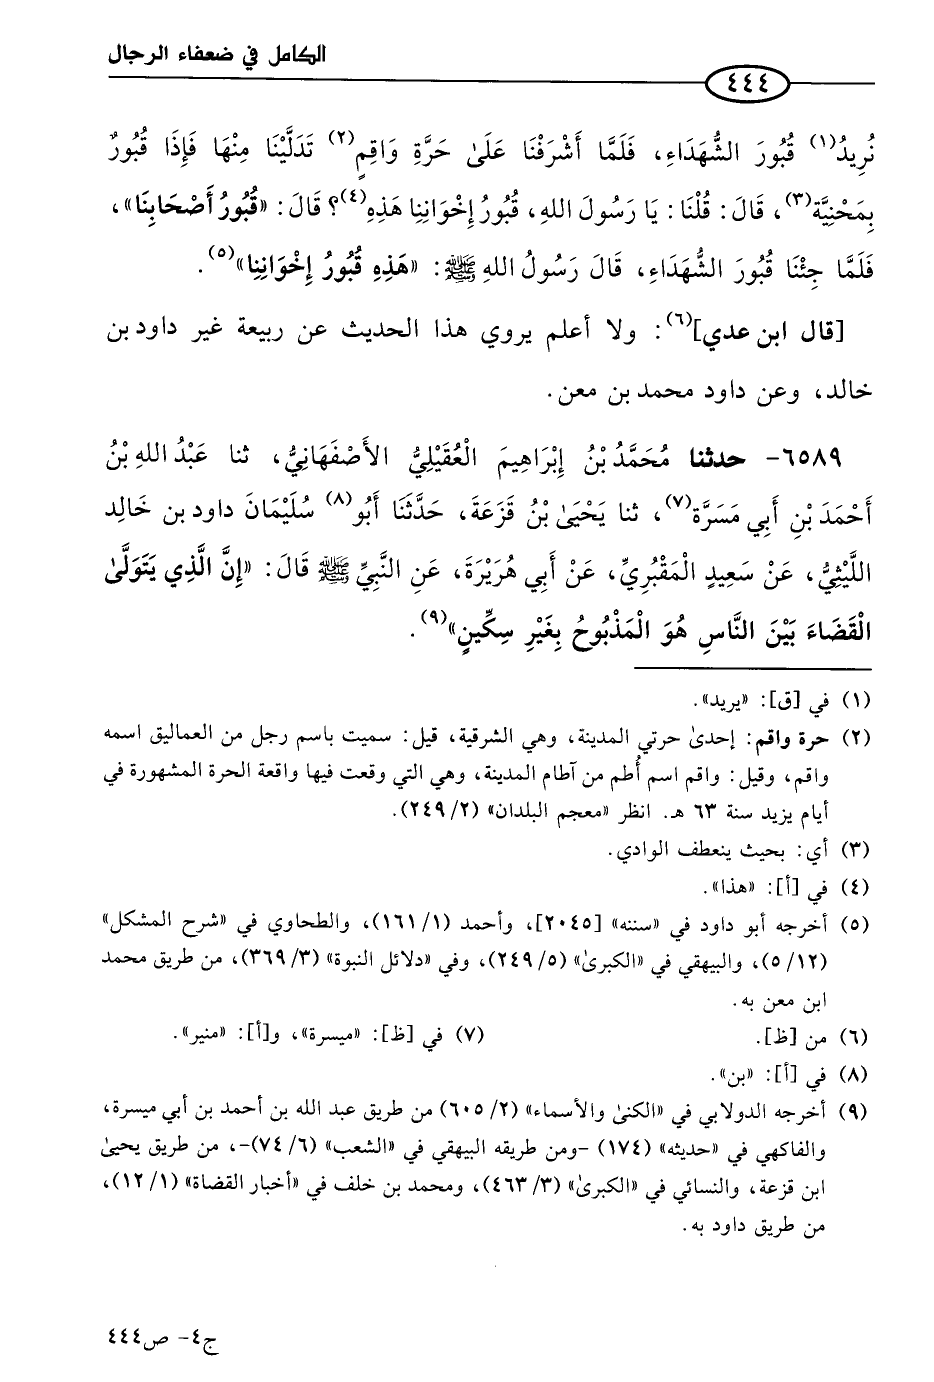 الكامل في ضعفاء الرجال
٤٤٤
نُرِيدُ(١) قُبُورَ الشُّهَدَاءِ، فَلَمَّا أَشْرَفْنَا عَلَىٰ حَرَّةِ وَاقِمٍ(٢) تَدَلَّيْنَا مِنْهَا فَإِذَا قُبُورٌ
بِمَحْنِيَّة(٣)، قَالَ: قُلْنَا: يَا رَسُولَ اللهِ، قُبُورُ إِخْوَانِنَا هَذِهِ(٤)؟ قَالَ: «قُبُورُ أَصْحَابِنَا»،
فَلَمَّا جِئْنَا قُبُورَ الشُّهَدَاءِ، قَالَ رَسُولُ اللهِ ﷺ: «هَذِهِ قُبُورُ إِخْوَانِنا»(٥).
[قال ابن عدي](٦): ولا أعلم يروي هذا الحديث عن ربيعة غير داود بن
خالد، وعن داود محمد بن معن.
٦٥٨٩- حدثنا مُحَمَّدُ بْنُ إِبْرَاهِيمَ الْعُقَيْلِيُّ الأَصْفَهَانِيُّ، ثنا عَبْدُ اللهِ بْنُ
أَحْمَدَ بْنِ أَبِي مَسَرَّة(٧)، ثنا يَحْيَىٰ بْنُ قَزَعَةَ، حَدَّثَنَا أَبُو(٨) سُلَيْمَانَ داود بن خَالِد
اللَّيْثِيُّ، عَنْ سَعِيدٍ الْمَقْبُرِيِّ، عَنْ أَبِي هُرَيْرَةَ، عَنِ النَّبِيِّ ﷺ قَالَ: «إِنَّ الَّذِي يَتَوَلَّىٰ
الْقَضَاءَ بَيْنَ النَّاسِ هُوَ الْمَذْبُوحُ بِغَيْرِ سِكِّينٍ»(٩).
(١) في [ق]: «يريد».
(٢) حرة واقم: إحدىٰ حرتي المدينة، وهي الشرقية، قيل: سميت باسم رجل من العماليق اسمه
واقم، وقيل: واقم اسم أُطم من آطام المدينة، وهي التي وقعت فيها واقعة الحرة المشهورة في
أيام يزيد سنة ٦٣ هـ. انظر «معجم البلدان» (٢/ ٢٤٩).
(٣) أي: بحيث ينعطف الوادي.
(٤) في [أ]: «هذا».
(٥) أخرجه أبو داود في «سننه» [٢٠٤٥]، وأحمد (١/ ١٦١)، والطحاوي في «شرح المشكل»
(١٢/ ٥)، والبيهقي في «الكبرىٰ» (٥/ ٢٤٩)، وفي «دلائل النبوة» (٣/ ٣٦٩)، من طريق محمد
ابن معن به.
(٦) من [ظ]. (٧) في [ظ]: «ميسرة»، و[أ]: «منير».
(٨) في [أ]: «بن».
(٩) أخرجه الدولابي في «الكنىٰ والأسماء» (٢/ ٦٠٥) من طريق عبد الله بن أحمد بن أبي ميسرة،
والفاكهي في «حديثه» (١٧٤) -ومن طريقه البيهقي في «الشعب» (٦/ ٧٤)-، من طريق يحيىٰ
ابن قزعة، والنسائي في «الكبرىٰ» (٣/ ٤٦٣)، ومحمد بن خلف في «أخبار القضاة» (١/ ١٢)،
من طريق داود به.
ج٤- ص٤٤٤